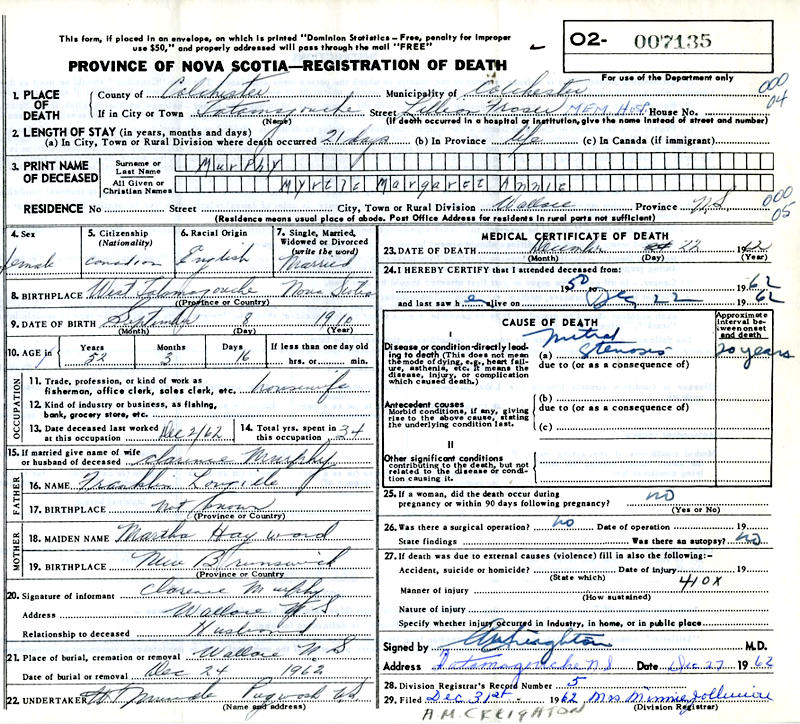 This form, if placed in an envelope, on which is printed "Dominion Statistics – Free, penalty for improper
use $50," and properly addressed will pass through the mail "FREE"
O2- 007135
PROVINCE OF NOVA SCOTIA—REGISTRATION OF DEATH
For use of the Department only
1. PLACE OF DEATH
County of Colchester Municipality of Colchester 000 04
If in City or Town Tatamagouche Street Lillian Fraser MEM. Hosp House No.
(Name) (If death occurred in a hospital or institution, give the name instead of street and number)
2. LENGTH OF STAY (in years, months and days)
(a) In City, Town or Rural Division where death occurred 21 days (b) In Province life (c) In Canada (if immigrant)
3. PRINT NAME OF DECEASED
Surname or Last Name Murphy
All Given or Christian Names Myrtle Margaret Annie
RESIDENCE No Street City, Town or Rural Division Wallace Province N.S. 000 05
(Residence means usual place of abode. Post Office Address for residents in rural parts not sufficient)
4. Sex female
5. Citizenship (Nationality) Canadian
6. Racial Origin English
7. Single, Married, Widowed or Divorced (write the word) Married
8. BIRTHPLACE West Tatamagouche Nova Scotia
(Province or Country)
9. DATE OF BIRTH September 8 1910
(Month) (Day) (Year)
10. AGE in Years 52 Months 3 Days 16 If less than one day old hrs. or min.
OCCUPATION
11. Trade, profession, or kind of work as fisherman, office clerk, sales clerk, etc. housewife
12. Kind of industry or business, as fishing, bank, grocery store, etc.
13. Date deceased last worked at this occupation Dec 2/62
14. Total yrs. spent in this occupation 34
15. If married give name of wife or husband of deceased Clarence Murphy
FATHER
16. NAME Franklin
17. BIRTHPLACE not known
(Province or Country)
MOTHER
18. MAIDEN NAME Martha Hayward
19. BIRTHPLACE New Brunswick
(Province or Country)
20. Signature of informant Clarence Murphy
Address Wallace N S.
Relationship to deceased Husband
21. Place of burial, cremation or removal Wallace N S
Date of burial or removal Dec 24 1962
22. UNDERTAKER Pugwash NS
(Name and address)
MEDICAL CERTIFICATE OF DEATH
23. DATE OF DEATH December 22 1962
(Month) (Day) (Year)
24. I HEREBY CERTIFY that I attended deceased from:
1950 to Dec 22 1962
and last saw her alive on 1962
CAUSE OF DEATH
Approximate interval between onset and death
I
Disease or condition directly leading to death (This does not mean the mode of dying, e.g., heart failure, asthenia, etc. It means the disease, injury, or complication which caused death.)
(a) Mitral Stenosis 20 years
due to (or as a consequence of)
Antecedent causes
Morbid conditions, if any, giving rise to the above cause, stating the underlying condition last.
(b)
due to (or as a consequence of)
(c)
II
Other significant conditions contributing to the death, but not related to the disease or condition causing it.
25. If a woman, did the death occur during pregnancy or within 90 days following pregnancy? no
(Yes or No)
26. Was there a surgical operation? no Date of operation 19
State findings Was there an autopsy? no
27. If death was due to external causes (violence) fill in also the following:–
Accident, suicide or homicide? Date of injury 19
(State which) 410X
Manner of injury
(How sustained)
Nature of injury
Specify whether injury occurred in industry, in home, or in public place
Signed by AMCreighton M.D.
Address Tatamagouche N S Date Dec 27 1962
28. Division Registrar's Record Number 5
29. Filed Dec 31st 1962 Mrs Minnie
(Division Registrar)
A M. CREIGHTON